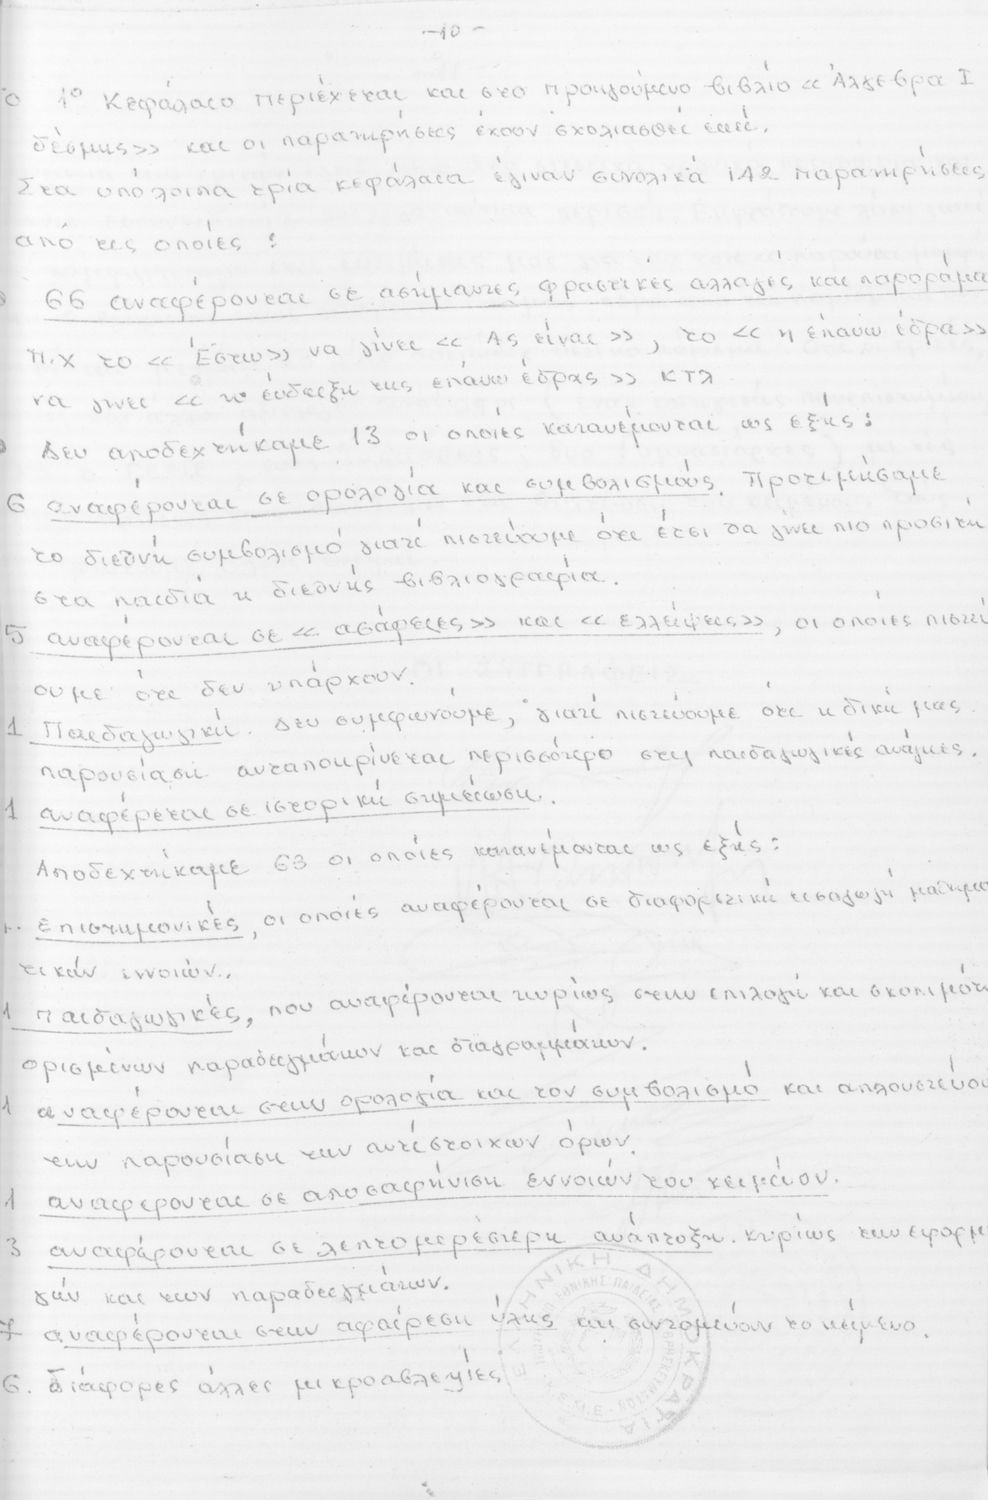 -10-
Ο 1º Κεφάλαιο περιέχεται και στο προηγούμενο βιβλίο «Άλγεβρα Ι
δέσμης» και οι παρατηρήσεις έχουν σχολιασθεί εκεί.
Στα υπόλοιπα τρία κεφάλαια έγιναν συνολικά 142 παρατηρήσεις
από τις οποίες :
66 αναφέρονται σε ασήμαντες φραστικές αλλαγές και παροράμα
π.χ το «Έστω» να γίνει «Ας είναι», το «η επάνω έδρα»
να γίνει « ένδειξη της επάνω έδρας» κτλ
Δεν αποδεχτήκαμε 13 οι οποίες κατανέμονται ως εξής:
6 αναφέρονται σε ορολογία και συμβολισμούς. Προτιμήσαμε
το διεθνή συμβολισμό γιατί πιστεύουμε ότι έτσι θα γίνει πιο προσιτή
στα παιδιά η διεθνής βιβλιογραφία.
5 αναφέρονται σε «ασάφειες» και «ελλείψεις», οι οποίες πιστεύ
ουμε ότι δεν υπάρχουν.
1 Παιδαγωγική. Δεν συμφωνούμε, γιατί πιστεύουμε ότι η δική μας
παρουσίαση ανταποκρίνεται περισσότερο στις παιδαγωγικές ανάγκες.
1 αναφέρεται σε ιστορική σημείωση.
Αποδεχτήκαμε 63 οι οποίες κατανέμονται ως εξής:
Επιστημονικές, οι οποίες αναφέρονται σε διαφορετική εισαγωγή μαθημα
τικών εννοιών.
1 Παιδαγωγικές, που αναφέρονται κυρίως στην επιλογή και σκοπιμότη
ορισμένων παραδειγμάτων και διαγραμμάτων.
1 αναφέρονται στην ορολογία και τον συμβολισμό και απλουστεύου
την παρουσίαση των αντίστοιχων όρων.
1 αναφέρονται σε αποσαφήνιση εννοιών του κειμένου.
3 αναφέρονται σε λεπτομερέστερη ανάπτυξη κυρίως των εφαρμο
γών και των παραδειγμάτων.
7 αναφέρονται στην αφαίρεση ύλης και συντομεύουν το κείμενο.
6. διάφορες άλλες μικροαβλεψίες
ΕΛΛΗΝΙΚΗ ΔΗΜΟΚΡΑΤΙΑ